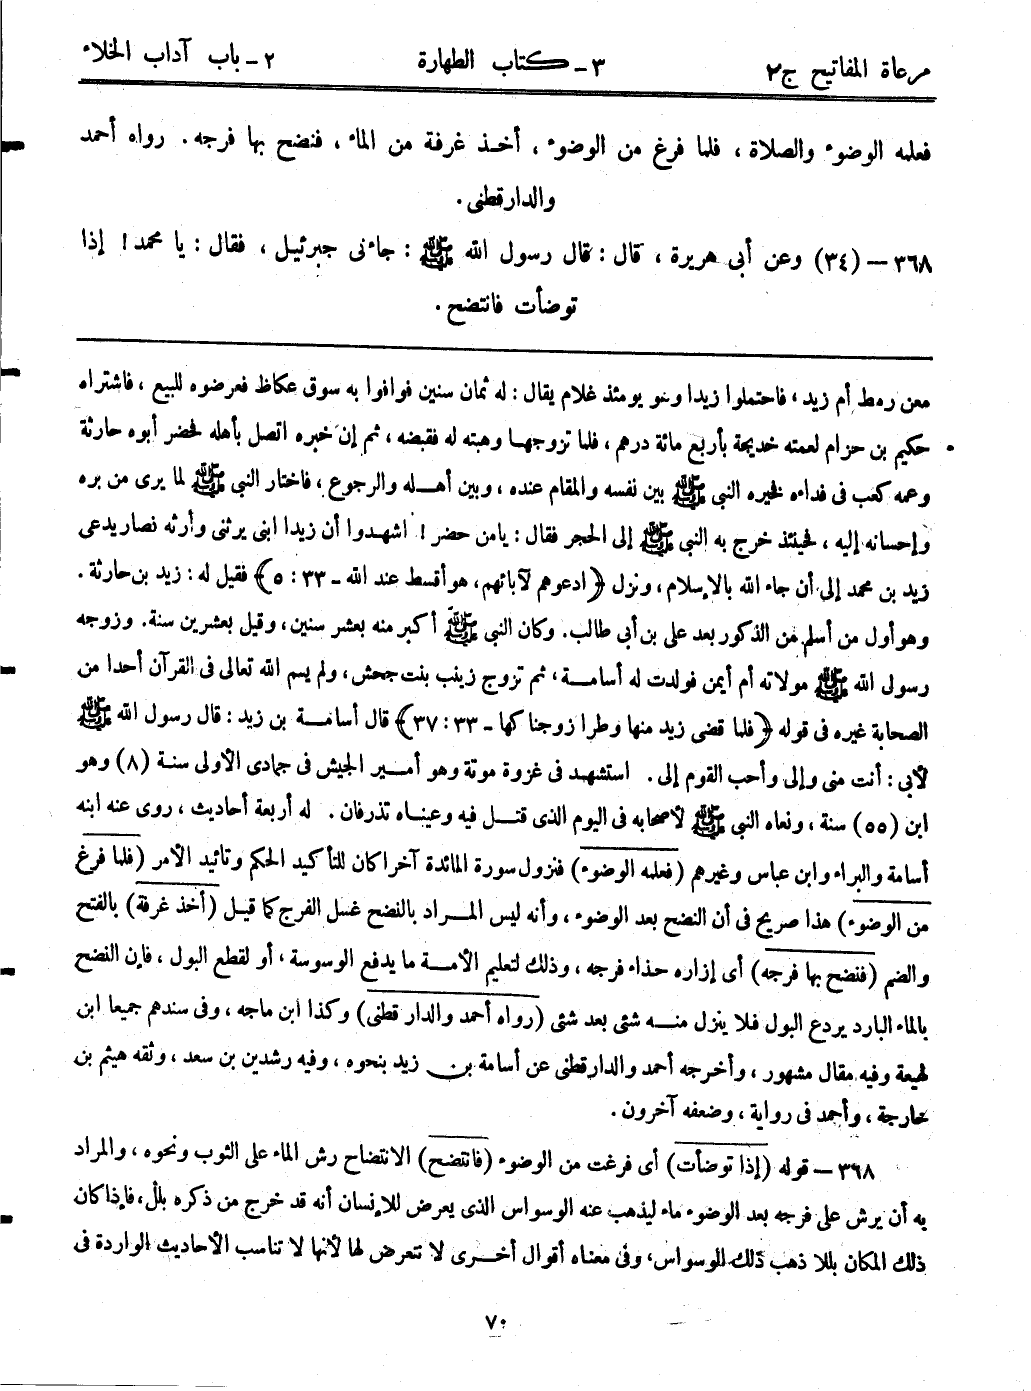 مرعاة المفاتيح ج٢
٣ - كتاب الطهارة
٢ - باب آداب الخلاء
فعلمه الوضوء والصلاة ، فلما فرغ من الوضوء ، أخذ غرفة من الماء ، فنضح بها فرجه . رواه أحمد
والدارقطنى .
٣٦٨ – (٣٤) وعن أبى هريرة ، قال : قال رسول الله ﷺ : جاءنى جبرئيل ، فقال : يا محمد ! إذا
توضأت فانتضح .
معن رهط أم زيد ، فاحتملوا زيدا وهو يومئذ غلام يقال : له ثمان سنين فوافوا به سوق عكاظ فعرضوه للبيع ، فاشتراه
حكيم بن حزام لعمته خديجة بأربع مائة درهم ، فلما تزوجها وهبته له فقبضه ، ثم إن خبره اتصل بأهله فحضر أبوه حارثة
وعمه كعب فى فداءه فخيره النبي ﷺ بين نفسه والمقام عنده ، وبين أهله والرجوع ، فاختار النبي ﷺ لما يرى من بره
وإحسانه إليه ، فحينئذ خرج به النبي ﷺ إلى الحجر فقال : يامن حضر ! اشهدوا أن زيدا ابنى يرثنى وأرثه نصار يدعى
زيد بن محمد إلى أن جاء الله بالإسلام ، ونزل ﴿ ادعوهم لآبائهم، هو أقسط عند الله - ٣٣ : ٥ ﴾ فقيل له : زيد بن حارثة .
وهو أول من أسلم من الذكور بعد على بن أبى طالب. وكان النبي ﷺ أكبر منه بعشر سنين، وقيل بعشرين سنة. وزوجه
رسول الله ﷺ مولاته أم أيمن فولدت له أسامة ، ثم تزوج زينب بنت جحش، ولم يسم الله تعالى فى القرآن أحدا من
الصحابة غيره فى قوله ﴿ فلما قضى زيد منها وطرا زوجناكها - ٣٣ : ٣٧ ﴾ قال أسامة بن زيد : قال رسول الله ﷺ
لأبى : أنت منى وإلى وأحب القوم إلى . استشهد فى غزوة موتة وهو أمير الجيش فى جمادى الأولى سنة (٨) وهو
ابن (٥٥) سنة ، ونعاه النبي ﷺ لأصحابه فى اليوم الذى قتل فيه وعيناه تذرفان . له أربعة أحاديث ، روى عنه ابنه
أسامة والبراء وابن عباس وغيرهم (فعلمه الوضوء) فنزول سورة المائدة آخرا كان لتأكيد الحكم وتائيد الأمر (فلما فرغ
من الوضوء) هذا صريح فى أن النضح بعد الوضوء ، وأنه ليس المراد بالنضح غسل الفرج كما قيل (أخذ غرفة) بالفتح
والضم (فنضح بها فرجه) أى إزاره حذاء فرجه ، وذلك لتعليم الأمة ما يدفع الوسوسة ، أو لقطع البول ، فإن النضح
بالماء البارد يردع البول فلا ينزل منه شئى بعد شئى (رواه أحمد والدار قطنى) وكذا ابن ماجه ، وفى سندهم جميعا ابن
لهيعة وفيه مقال مشهور ، وأخرجه أحمد والدارقطنى عن أسامة بن زيد بنحوه ، وفيه رشدين بن سعد ، وثقه هيثم بن
خارجة ، وأحمد فى رواية ، وضعفه آخرون .
٣٦٨ – قوله (إذا توضأت) أى فرغت من الوضوء (فانتضح) الانتضاح رش الماء على الثوب ونحوه ، والمراد
به أن يرش على فرجه بعد الوضوء ماء ليذهب عنه الوسواس الذى يعرض للإنسان أنه قد خرج من ذكره بلل، فإذا كان
ذلك المكان بللا ذهب ذلك الوسواس، وفى معناه أقوال أخرى لا نتعرض لها لأنها لا تناسب الأحاديث الواردة فى
٧٠